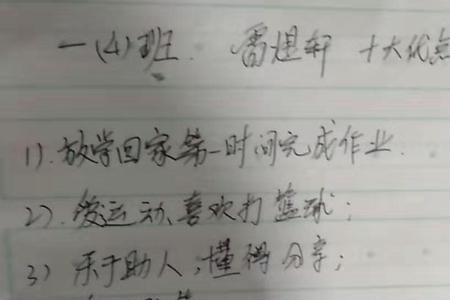 一(4)班. 雷煜轩 十大优点
1). 放学回家第一时间完成作业.
2). 爱运动, 喜欢打篮球;
3) 乐于助人; 懂得分享;